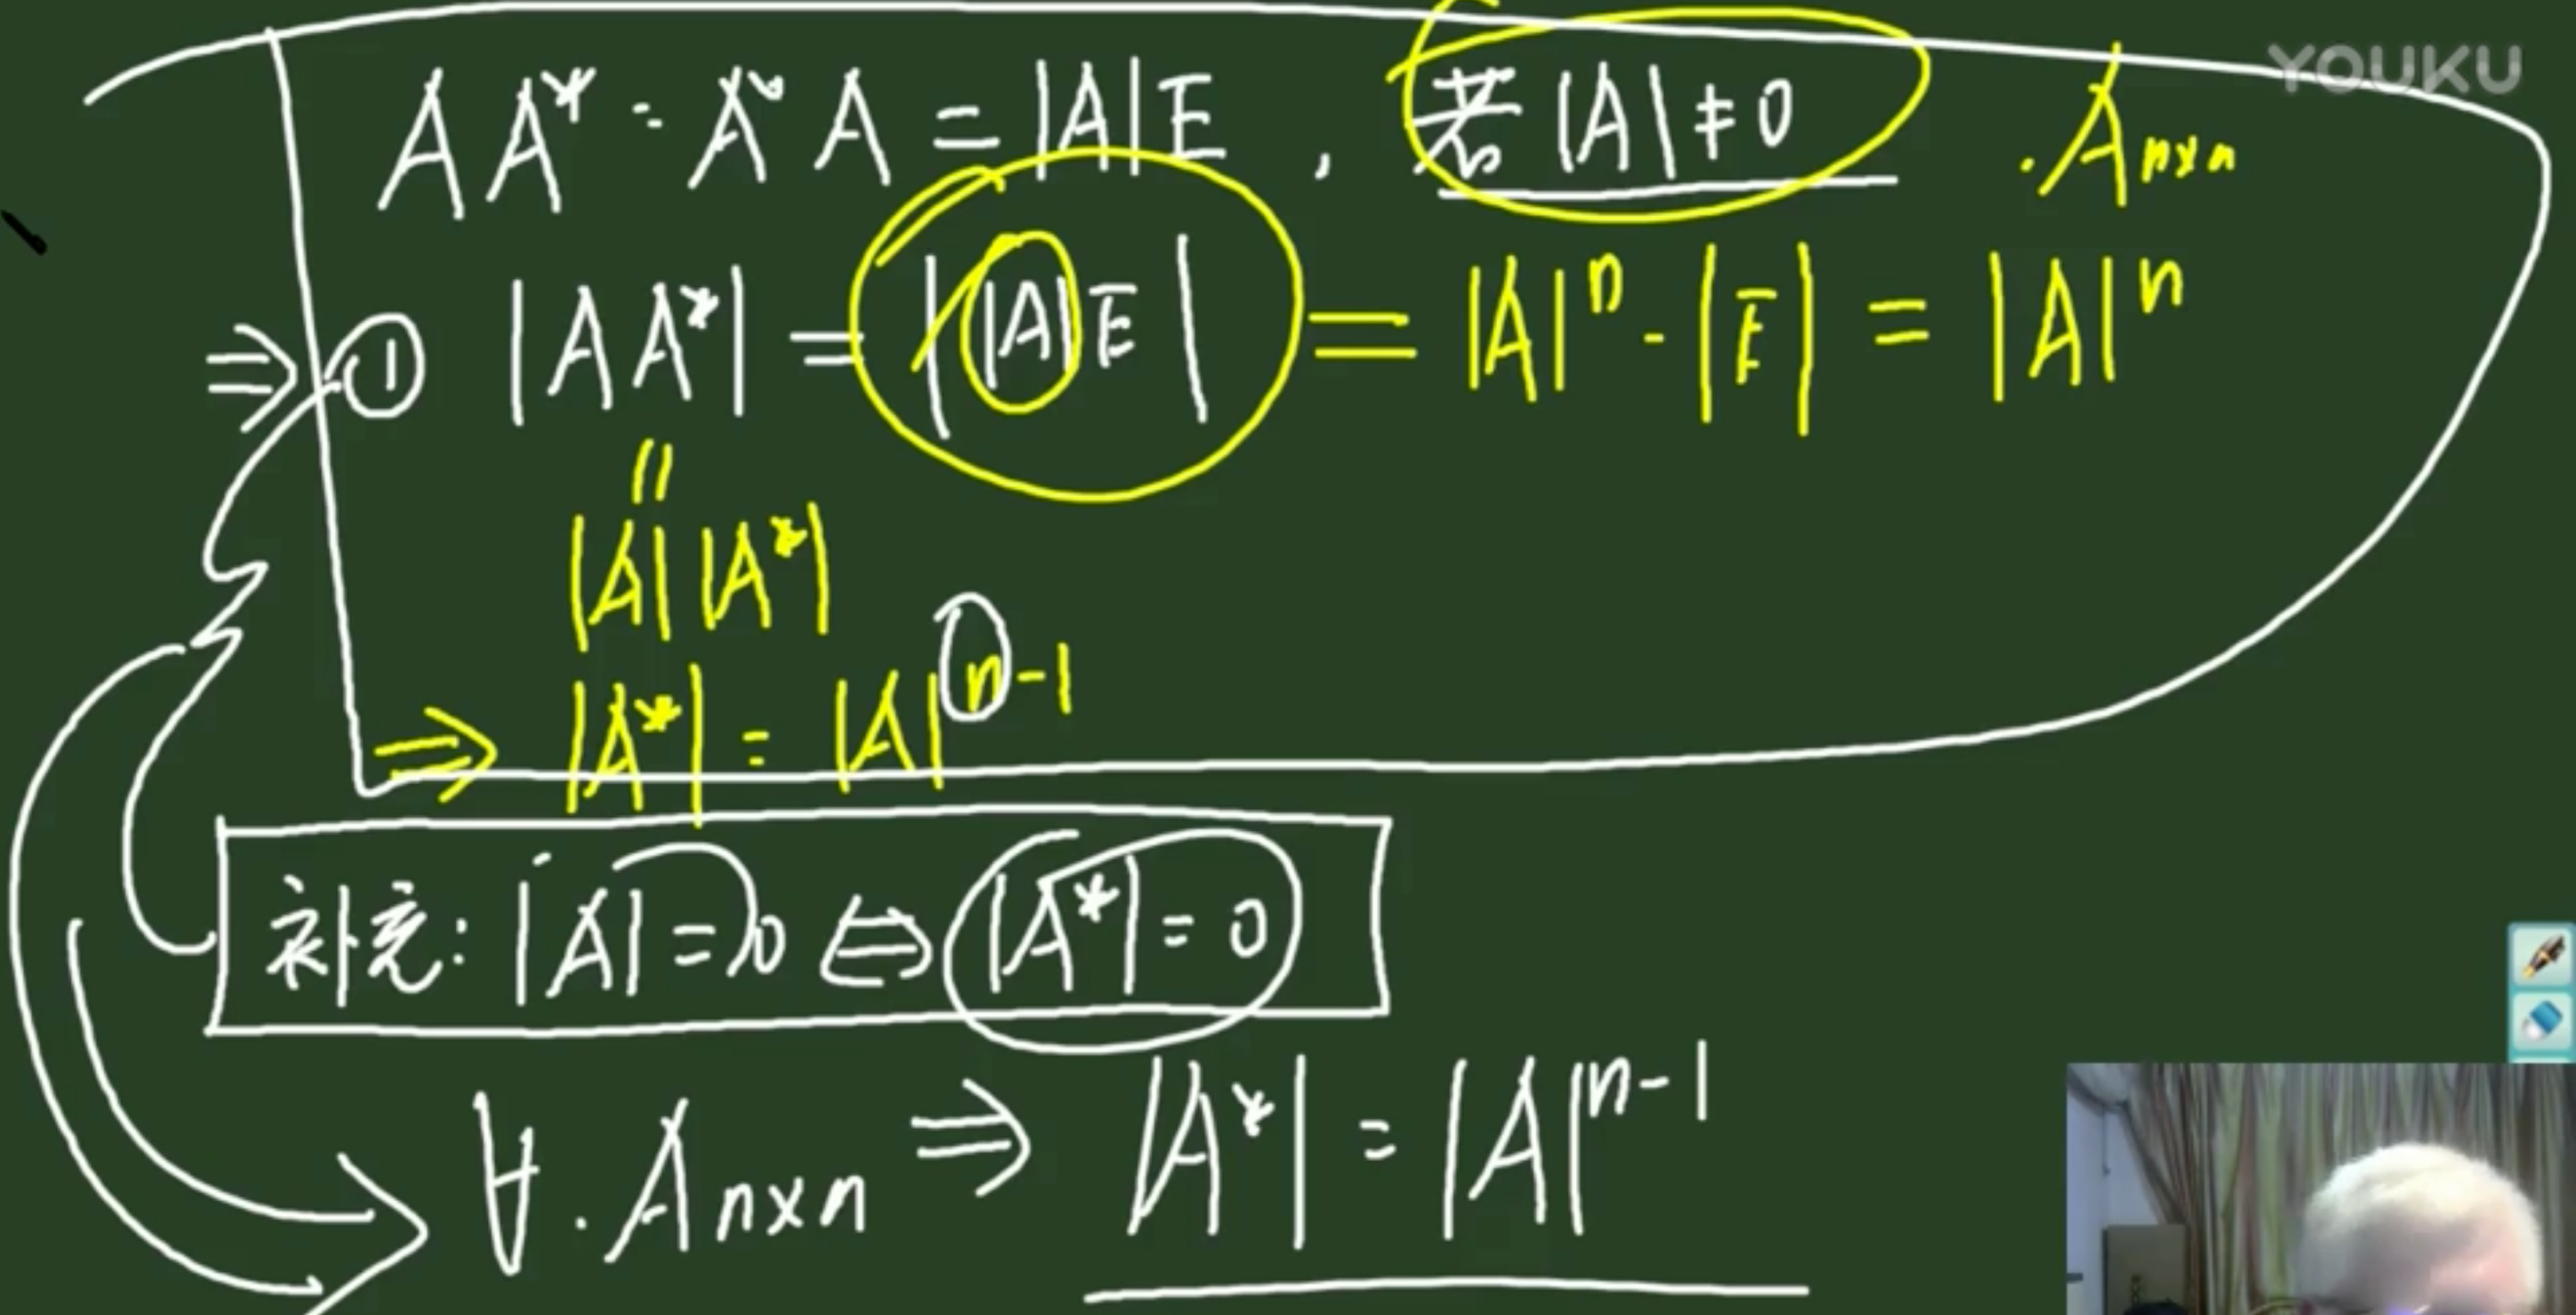 YOUKU
AA* = A*A = |A|E , 若 |A| ≠ 0 . Anxn
⇒ ① |AA*| = ||A|E| = |A|ⁿ · |E| = |A|ⁿ
||
|A| |A*|
⇒ |A*| = |A|ⁿ⁻¹
补充: |A| = 0 ⇔ |A*| = 0
∀ . Anxn ⇒ |A*| = |A|ⁿ⁻¹